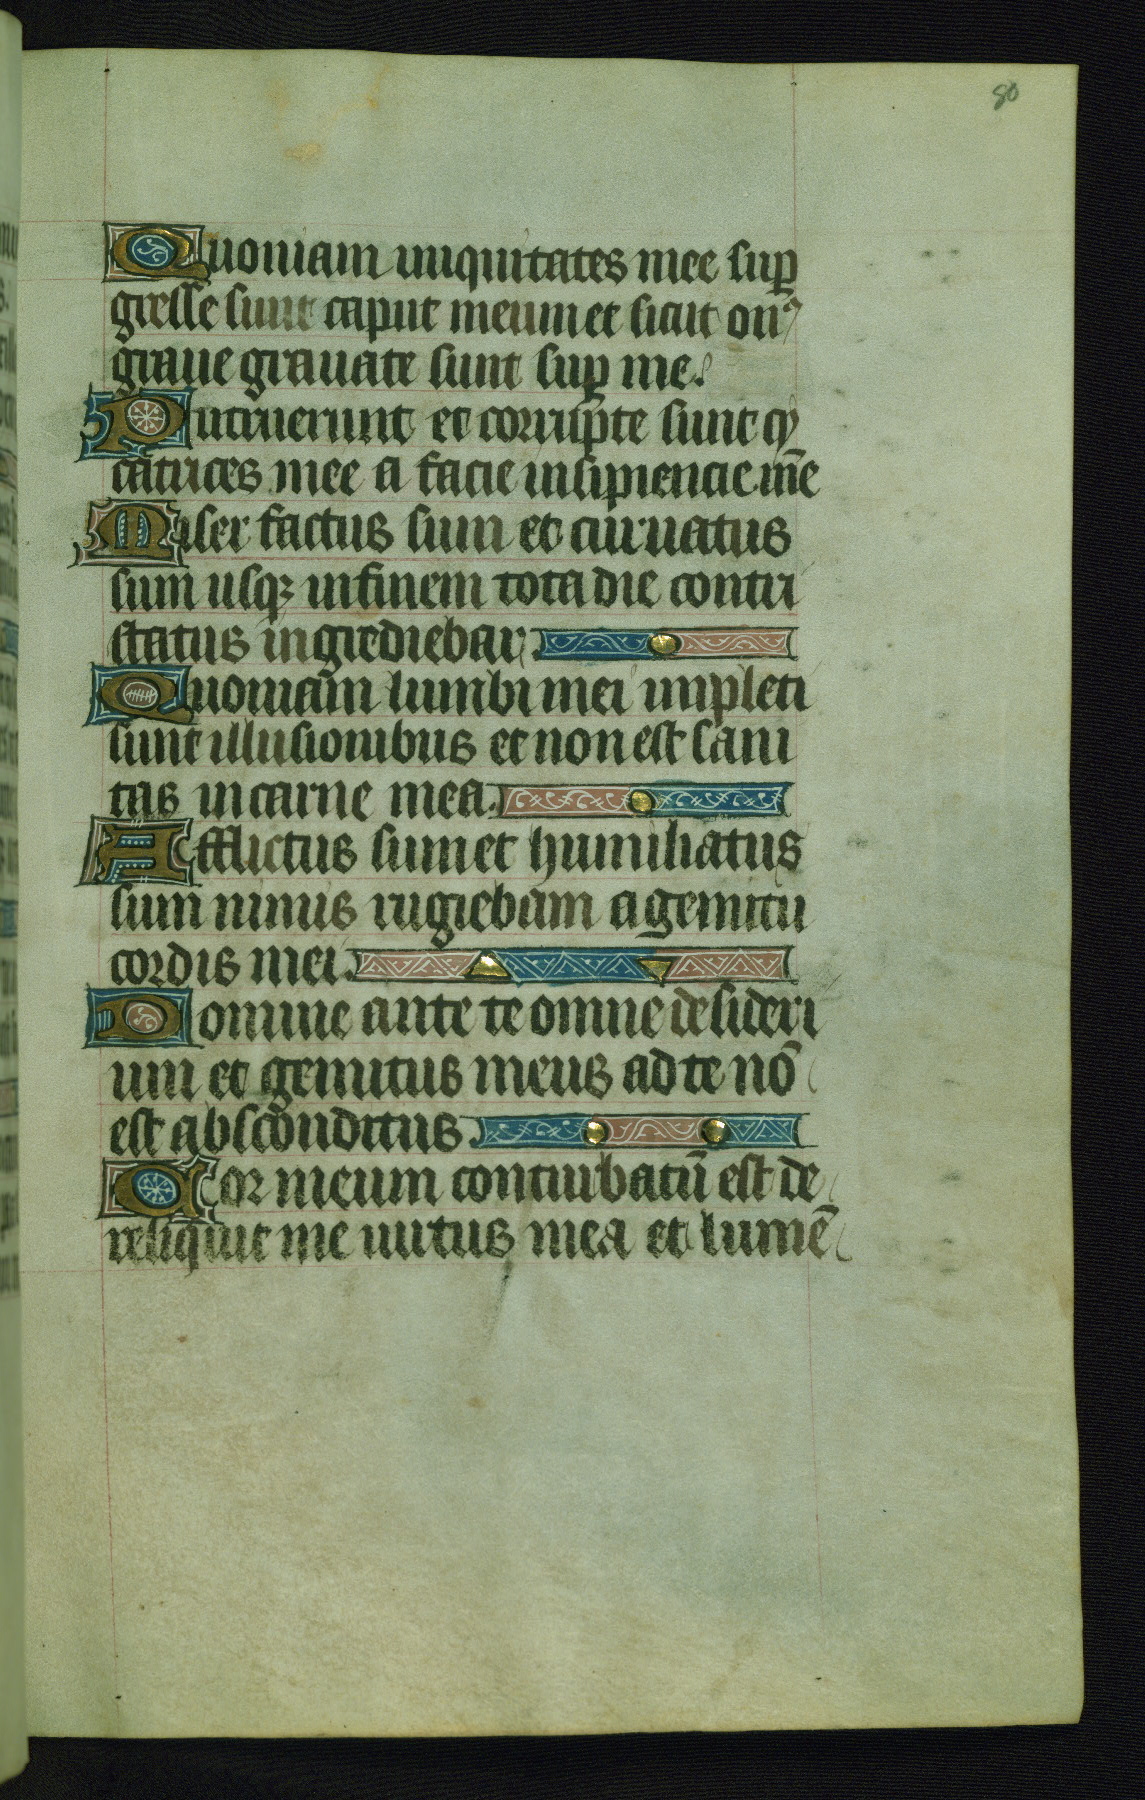 80
Quoniam iniquitates mee sup̱
gresse sunt caput meum et sicut onꝰ
graue grauate sunt sup̱ me.
Putruerunt et corrupte sunt cy
catrices mee a facie insipiencie mēe
Miser factus sum et curuatus
sum usqꝫ in finem tota die contri
status ingrediebar.
Quoniam lumbi mei impleti
sunt illusionibus et non est sani
tas in carne mea.
Afflictus sum et humiliatus
sum nimis rugiebam a gemitu
cordis mei.
Domine ante te omne desideri
um et gemitus meus ad te nō
est absconditus.
Cor meum conturbatū est de
reliquit me uirtus mea et lumē